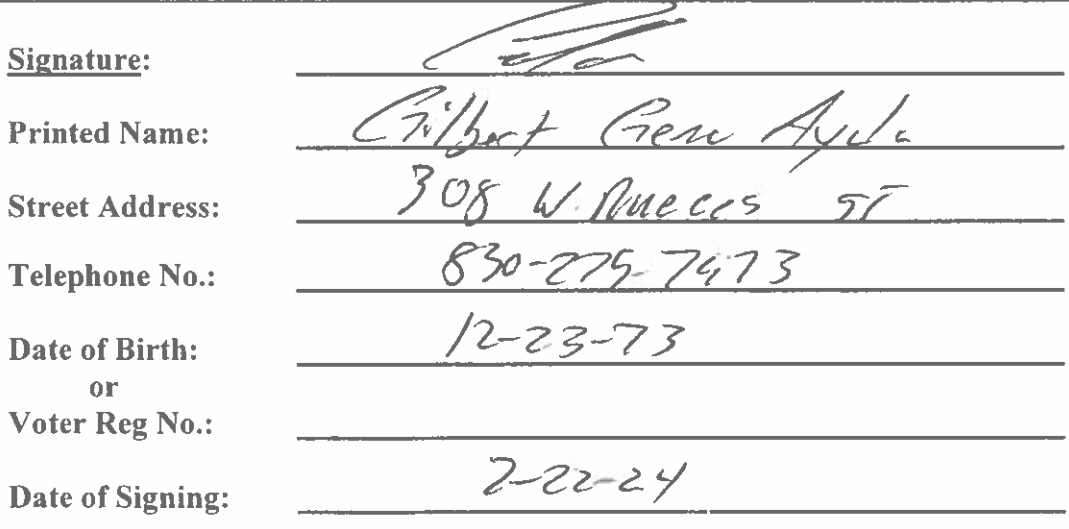 Signature:
Printed Name: Gilbert Gene Ayala
Street Address: 308 W. Nueces ST
Telephone No.: 830-275-7473
Date of Birth: 12-23-73
or
Voter Reg No.:
Date of Signing: 2-22-24